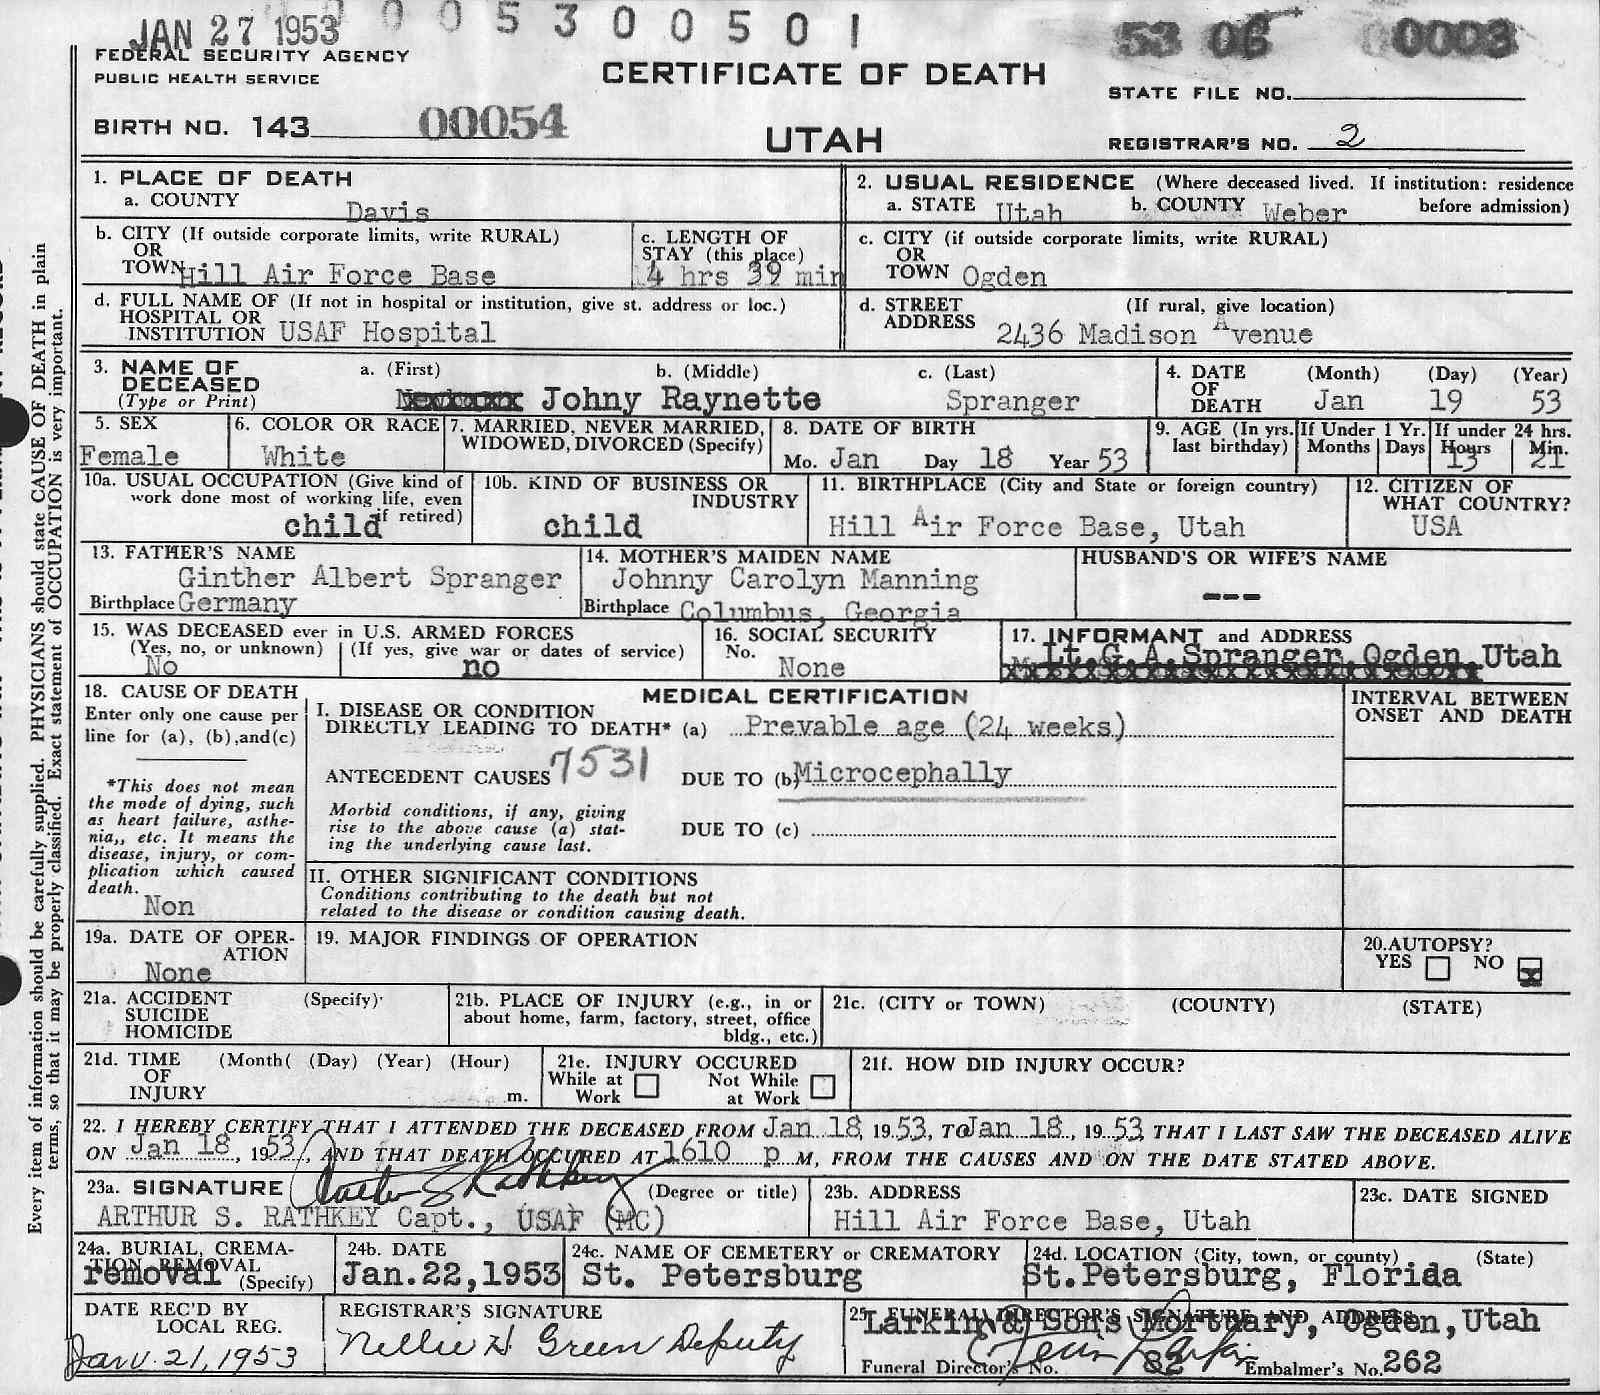 JAN 27 1953 0 0 5 3 0 0 5 0 1 53 06 00003
FEDERAL SECURITY AGENCY
PUBLIC HEALTH SERVICE
CERTIFICATE OF DEATH
STATE FILE NO.
BIRTH NO. 143 00054
UTAH
REGISTRAR'S NO. 2
1. PLACE OF DEATH
a. COUNTY Davis
2. USUAL RESIDENCE (Where deceased lived. If institution: residence before admission)
a. STATE Utah b. COUNTY Weber
b. CITY (If outside corporate limits, write RURAL)
OR
TOWN Hill Air Force Base
c. LENGTH OF
STAY (this place)
14 hrs 39 min
c. CITY (if outside corporate limits, write RURAL)
OR
TOWN Ogden
d. FULL NAME OF (If not in hospital or institution, give st. address or loc.)
HOSPITAL OR
INSTITUTION USAF Hospital
d. STREET (If rural, give location)
ADDRESS 2436 Madison Avenue
3. NAME OF
DECEASED
(Type or Print)
a. (First) b. (Middle) c. (Last)
Johny Raynette Spranger
4. DATE
OF
DEATH
(Month) (Day) (Year)
Jan 19 53
5. SEX
Female
6. COLOR OR RACE
White
7. MARRIED, NEVER MARRIED,
WIDOWED, DIVORCED (Specify)
8. DATE OF BIRTH
Mo. Jan Day 18 Year 53
9. AGE (In yrs.
last birthday)
If Under 1 Yr.
Months Days
If under 24 hrs.
Hours Min.
13 21
10a. USUAL OCCUPATION (Give kind of
work done most of working life, even
if retired)
child
10b. KIND OF BUSINESS OR
INDUSTRY
child
11. BIRTHPLACE (City and State or foreign country)
Hill Air Force Base, Utah
12. CITIZEN OF
WHAT COUNTRY?
USA
13. FATHER'S NAME
Ginther Albert Spranger
Birthplace Germany
14. MOTHER'S MAIDEN NAME
Johnny Carolyn Manning
Birthplace Columbus, Georgia
HUSBAND'S OR WIFE'S NAME
---
15. WAS DECEASED ever in U.S. ARMED FORCES
(Yes, no, or unknown) (If yes, give war or dates of service)
No no
16. SOCIAL SECURITY
No.
None
17. INFORMANT and ADDRESS
Lt. G. A. Spranger, Ogden, Utah
18. CAUSE OF DEATH
Enter only one cause per
line for (a), (b),and(c)
*This does not mean
the mode of dying, such
as heart failure, asthe-
nia,, etc. It means the
disease, injury, or com-
plication which caused
death.
Non
MEDICAL CERTIFICATION
I. DISEASE OR CONDITION
DIRECTLY LEADING TO DEATH* (a) Prevable age (24 weeks)
ANTECEDENT CAUSES 7531 DUE TO (b) Microcephally
Morbid conditions, if any, giving
rise to the above cause (a) stat-
ing the underlying cause last.
DUE TO (c)
II. OTHER SIGNIFICANT CONDITIONS
Conditions contributing to the death but not
related to the disease or condition causing death.
INTERVAL BETWEEN
ONSET AND DEATH
19a. DATE OF OPER-
ATION
None
19. MAJOR FINDINGS OF OPERATION
20.AUTOPSY?
YES NO x
21a. ACCIDENT (Specify)
SUICIDE
HOMICIDE
21b. PLACE OF INJURY (e.g., in or
about home, farm, factory, street, office
bldg., etc.)
21c. (CITY or TOWN) (COUNTY) (STATE)
21d. TIME (Month( (Day) (Year) (Hour)
OF
INJURY m.
21e. INJURY OCCURED
While at Not While
Work at Work
21f. HOW DID INJURY OCCUR?
22. I HEREBY CERTIFY THAT I ATTENDED THE DECEASED FROM Jan 18, 1953, TO Jan 18, 1953, THAT I LAST SAW THE DECEASED ALIVE
ON Jan 18, 1953, AND THAT DEATH OCCURED AT 1610 p M, FROM THE CAUSES AND ON THE DATE STATED ABOVE.
23a. SIGNATURE Arthur S Rathkey (Degree or title)
ARTHUR S. RATHKEY Capt., USAF (MC)
23b. ADDRESS
Hill Air Force Base, Utah
23c. DATE SIGNED
24a. BURIAL, CREMA-
TION REMOVAL
removal (Specify)
24b. DATE
Jan.22,1953
24c. NAME OF CEMETERY or CREMATORY
St. Petersburg
24d. LOCATION (City, town, or county) (State)
St.Petersburg, Florida
DATE REC'D BY
LOCAL REG.
Jan. 21, 1953
REGISTRAR'S SIGNATURE
Nellie H. Green Deputy
25. FUNERAL DIRECTOR'S SIGNATURE AND ADDRESS
Larkin & Sons Mortuary, Ogden, Utah
Funeral Director's No. 82 Embalmer's No. 262
Every item of information should be carefully supplied. PHYSICIANS should state CAUSE OF DEATH in plain
terms, so that it may be properly classified. Exact statement of OCCUPATION is very important.